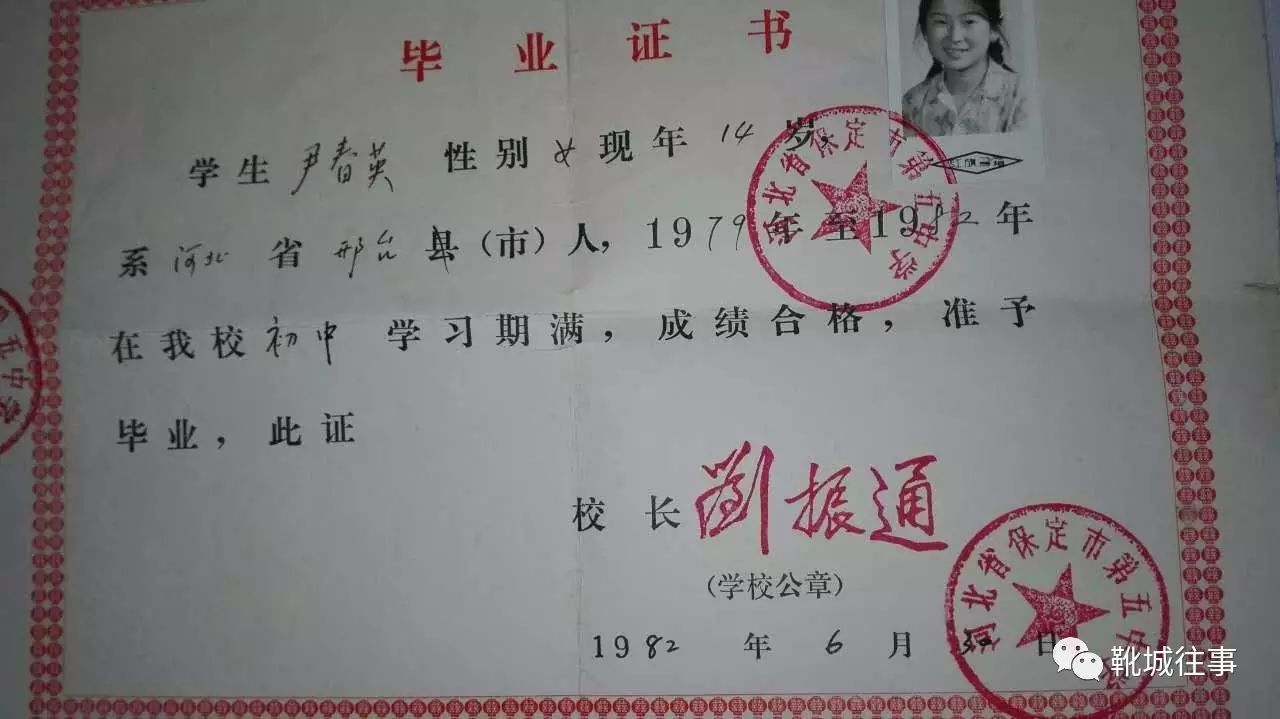 毕业证书
学生 尹春英 性别 女 现年 14 岁,
系 河北 省 邢台 县(市)人, 1979年至1982年
在我校 初中 学习期满, 成绩合格, 准予
毕业, 此证
校长 劉振通
(学校公章)
1982 年 6 月 30 日
河北省保定市第五中学
河北省保定市第五中学
第五中学
靴城往事